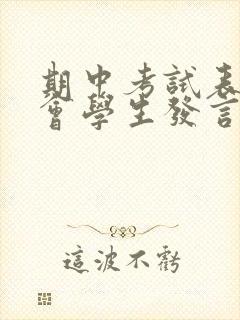 期中考試表
會學生發言
這波不虧